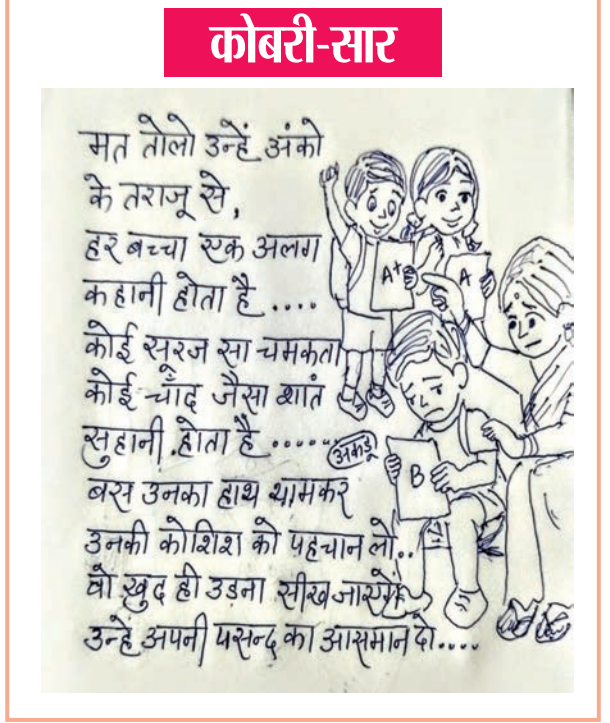 कोबरी-सार
मत तोलो उन्हें अंको
के तराजू से,
हर बच्चा एक अलग
कहानी होता है ....
कोई सूरज सा चमकता
कोई चाँद जैसा शांत
सुहानी होता है ......
अकडू
बस उनका हाथ थामकर
उनकी कोशिश को पहचान लो..
वो खुद ही उडना सीख जाएगें
उन्हे अपनी पसन्द का आसमान दो....
A+
A
B